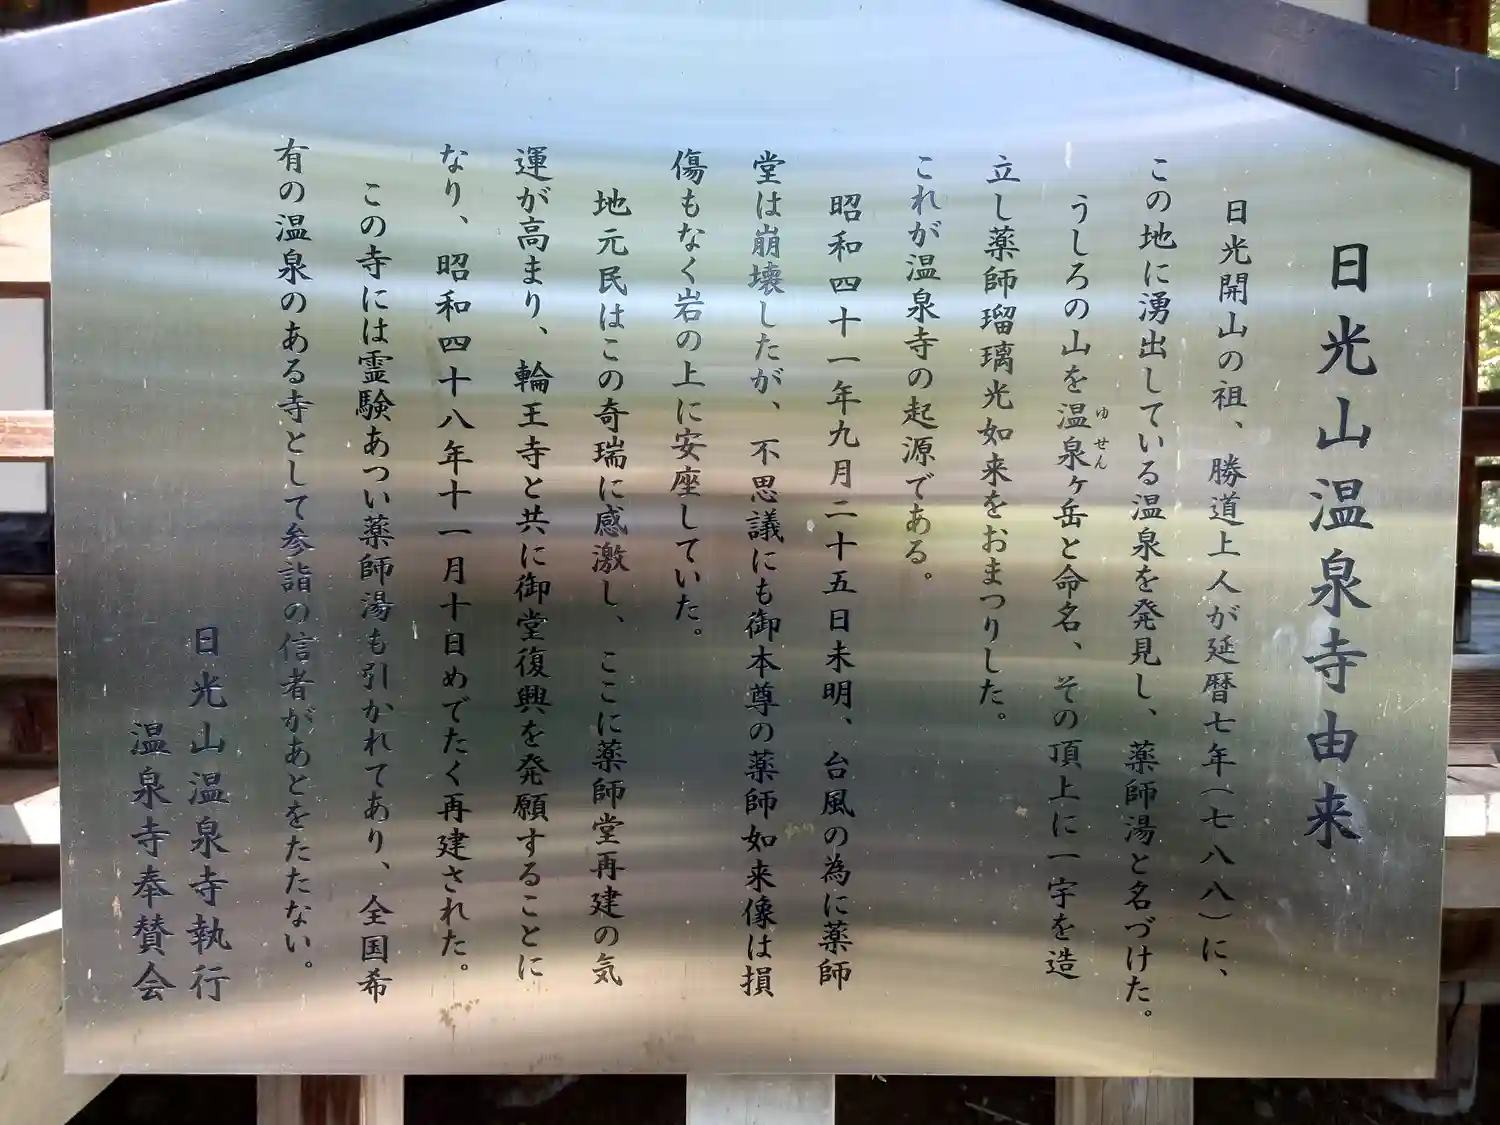 日光山温泉寺由来
日光開山の祖、勝道上人が延暦七年(七八八)に、
この地に湧出している温泉を発見し、薬師湯と名づけた。
うしろの山を温泉ヶ岳と命名、その頂上に一宇を造
ゆせん
立し薬師瑠璃光如来をおまつりした。
これが温泉寺の起源である。
昭和四十一年九月二十五日未明、台風の為に薬師
堂は崩壊したが、不思議にも御本尊の薬師如来像は損
傷もなく岩の上に安座していた。
地元民はこの奇瑞に感激し、ここに薬師堂再建の気
運が高まり、輪王寺と共に御堂復興を発願することに
なり、昭和四十八年十一月十日めでたく再建された。
この寺には霊験あつい薬師湯も引かれてあり、全国希
有の温泉のある寺として参詣の信者があとをたたない。
日光山温泉寺執行
温泉寺奉賛会